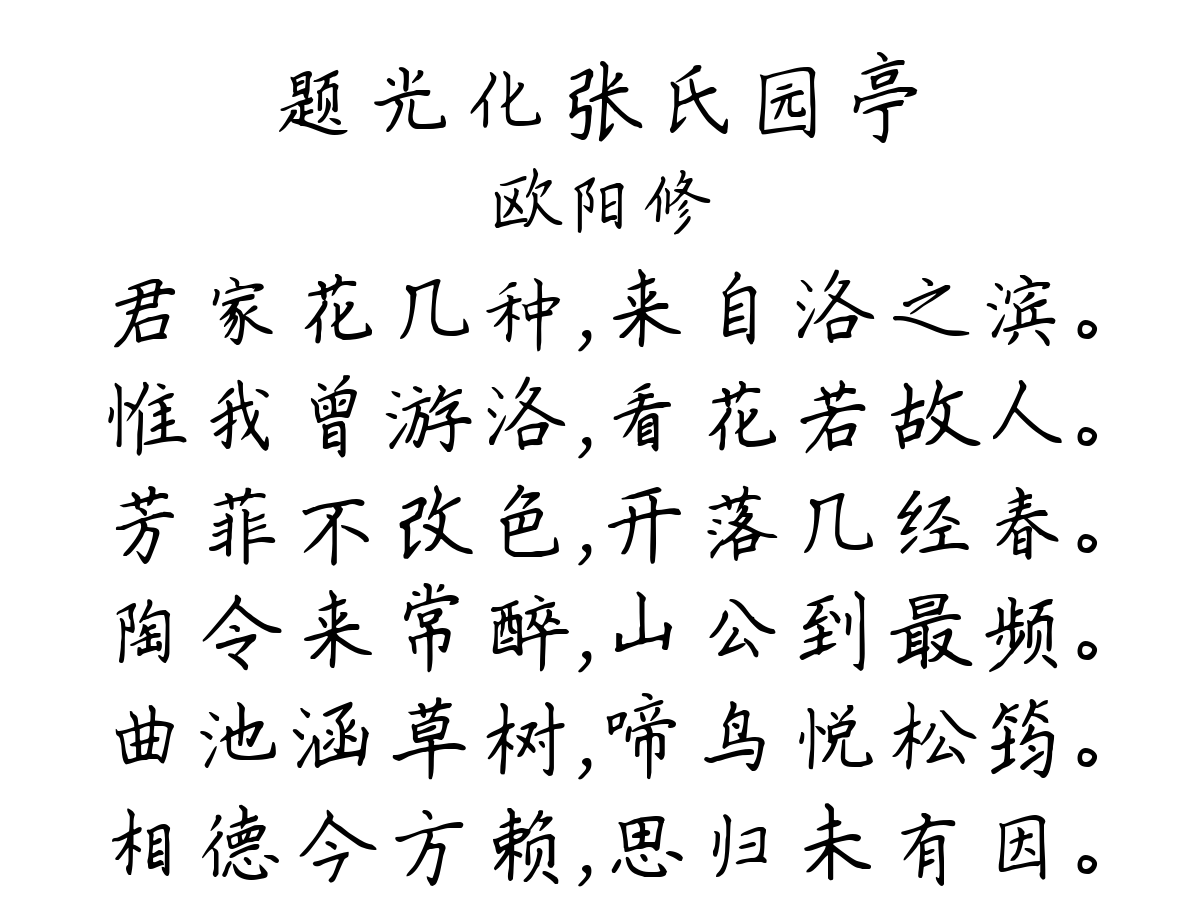 题光化张氏园亭
欧阳修
君家花几种,来自洛之滨。
惟我曾游洛,看花若故人。
芳菲不改色,开落几经春。
陶令来常醉,山公到最频。
曲池涵草树,啼鸟悦松筠。
相德今方赖,思归未有因。